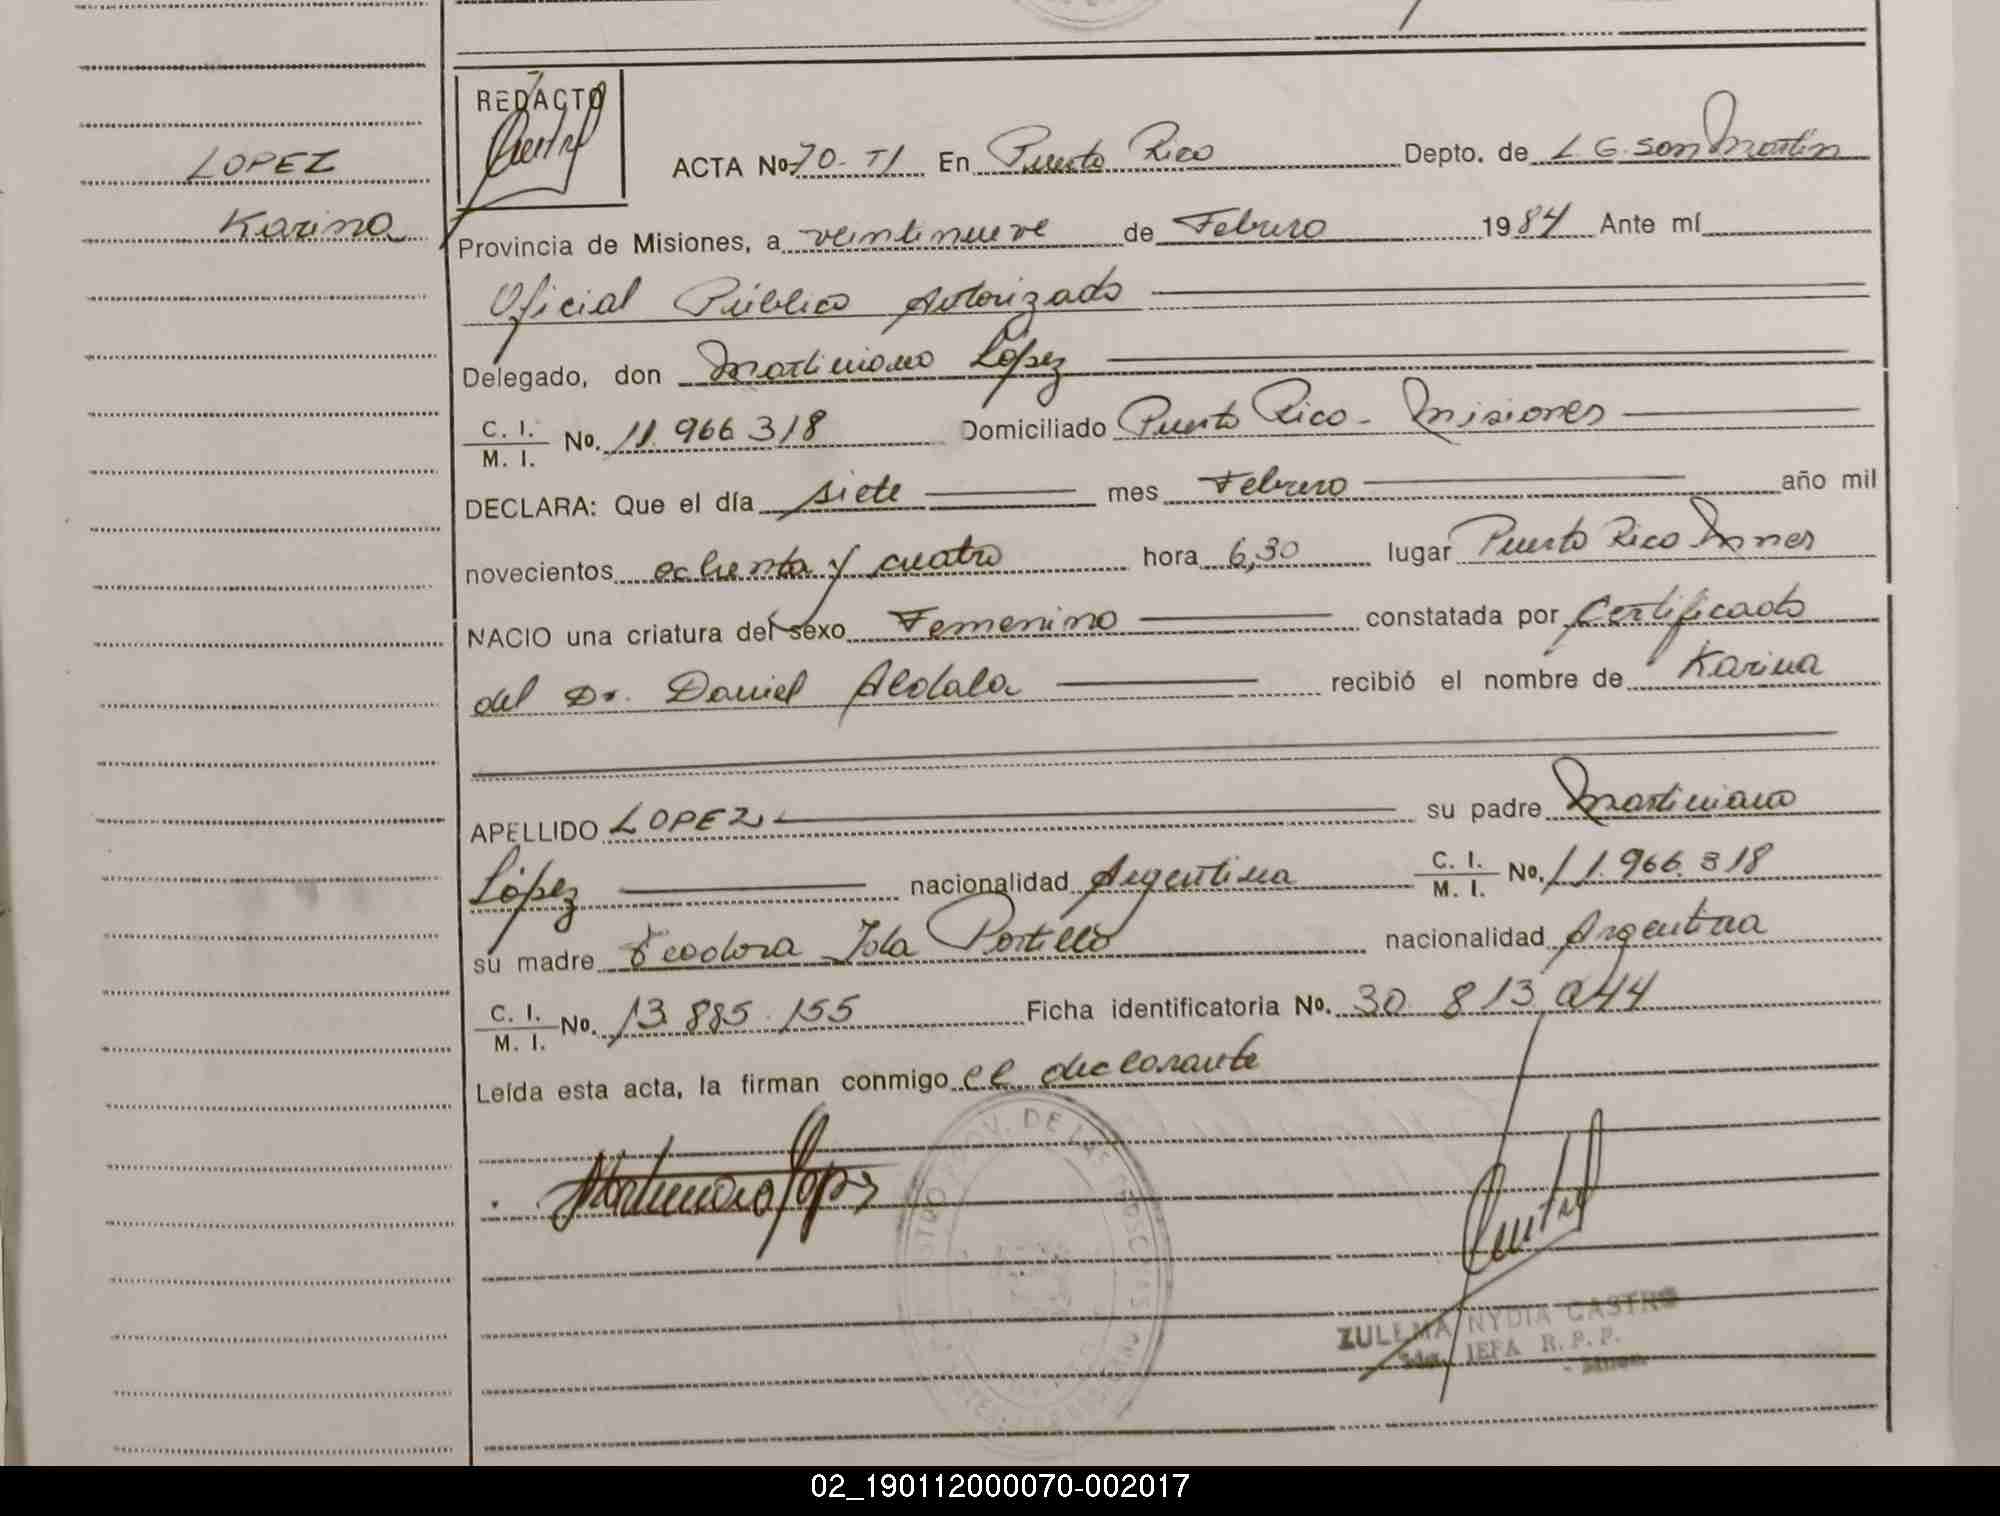 REDACTO
LOPEZ
Karina
ACTA No. 70. TI En Puerto Rico Depto. de L. G. San Martin
Provincia de Misiones, a veintinueve de Febrero 1984 Ante mí
Oficial Público Autorizado
Delegado, don Martiniano López
C. I. / M. I. No. 11.966.318 Domiciliado Puerto Rico - Misiones
DECLARA: Que el día siete mes Febrero año mil
novecientos ochenta y cuatro hora 6,30 lugar Puerto Rico Mnes
NACIO una criatura del sexo Femenino constatada por Certificado
del Dr. Daniel recibió el nombre de Karina
APELLIDO LOPEZ su padre Martiniano
López nacionalidad Argentina C. I. / M. I. No. 11.966.318
su madre Teodora Portillo nacionalidad Argentina
C. I. / M. I. No. 13.885.155 Ficha identificatoria No. 30.813.044
Leída esta acta, la firman conmigo el declarante
Martiniano López
ZULEMA NYDIA CASTRO
JEFA R. P. P.
02_190112000070-002017